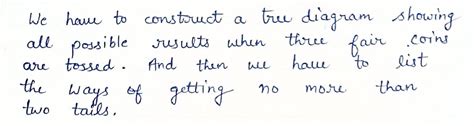 We have to construct a tree diagram showing
all possible results when three fair coins
are tossed. And then we have to list
the ways of getting no more than
two tails.